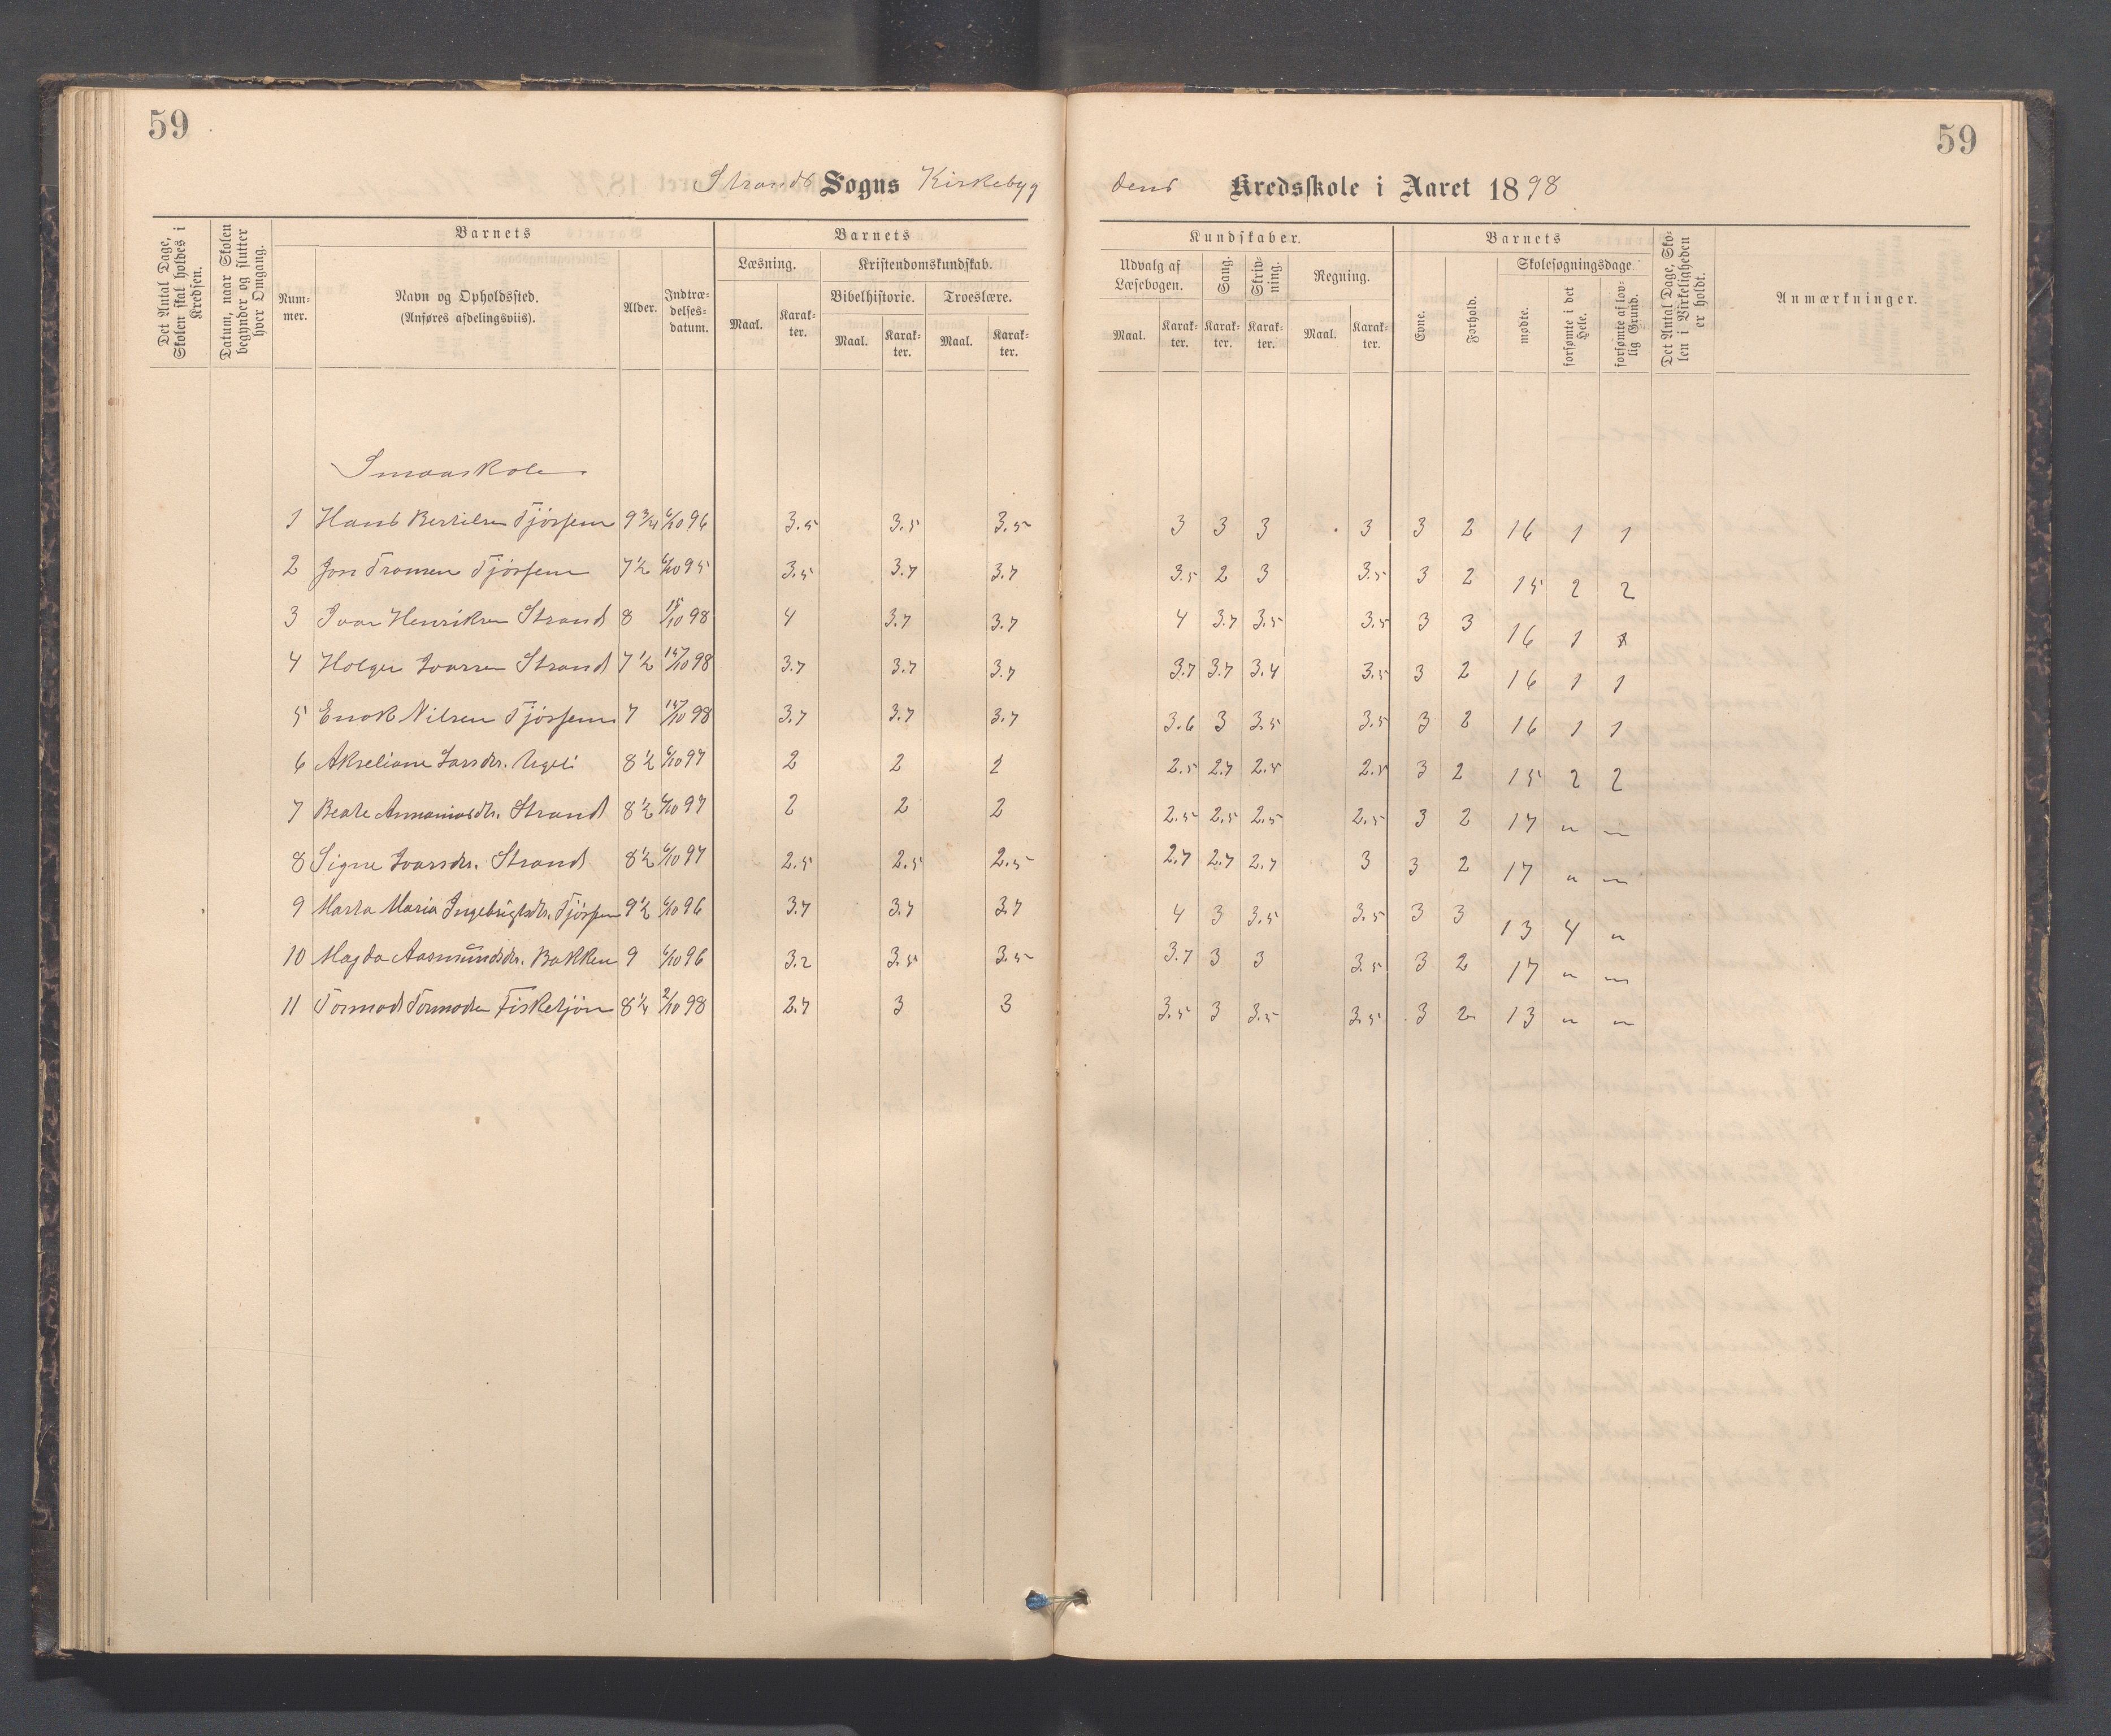 59
59
Strands Sogns Kirkebyg
dens Kredsskole i Aaret 1898
Det Antal Dage, Skolen skal holdes i Kredsen.
Datum, naar Skolen begynder og slutter hver Omgang.
Barnets
Nummer.
Navn og Opholdssted.
(Anføres afdelingsviis).
Alder.
Indtrædelsesdatum.
Barnets
Læsning.
Maal.
Karakter.
Kristendomskundskab.
Bibelhistorie.
Maal.
Karakter.
Troeslære.
Maal.
Karakter.
Kundskaber.
Udvalg af Læsebogen.
Maal.
Karakter.
Sang.
Karakter.
Skrivning.
Karakter.
Regning.
Maal.
Karakter.
Barnets
Evne.
Forhold.
Skolesøgningsdage
mødte.
forsømte i det Hele.
forsømte af lovlig Grund.
Det Antal Dage, Skolen i Virkeligheden er holdt.
Anmærkninger.
Smaaskole
1 Hans Bertilsen Tjøssem 9 3/4 6/10 96 3.5 3.5 3.5 3 3 3 3 3 2 16 1 1
2 Jon Transen Tjøssem 7 1/2 6/10 95 3.5 3.7 3.7 3.5 2 3 3.5 3 2 15 2 2
3 Ivar Henriksen Strand 8 15/10 98 4 3.7 3.7 4 3.7 3.5 3.5 3 3 16 1 1
4 Holger Ivarsen Strand 7 1/2 15/10 98 3.7 3.7 3.7 3.7 3.7 3.4 3.5 3 2 16 1 1
5 Enok Nilsen Tjøssem 7 15/10 98 3.7 3.7 3.7 3.6 3 3.5 3.5 3 2 16 1 1
6 Akseliane Larsdtr. 8 1/2 6/10 97 2 2 2 2.5 2.7 2.5 2.5 3 2 15 2 2
7 Beate Annaniasdtr. Strand 8 1/2 6/10 97 2 2 2 2.5 2.5 2.5 2.5 3 2 17 " "
8 Signe Ivarsdtr. Strand 8 1/2 6/10 97 2.5 2.5 2.5 2.7 2.7 2.7 3 3 2 17 " "
9 Marta Maria Ingebrigtsdtr. Tjøssem 9 1/2 6/10 96 3.7 3.7 3.7 4 3 3.5 3.5 3 3 13 4 "
10 Magda Aasmundsdtr. Bakken 9 6/10 96 3.2 3.5 3.5 3.7 3 3 3.5 3 2 17 " "
11 Tormod Tormodsen Fisketjøn 8 1/4 2/10 98 2.7 3 3 3.5 3 3.5 3.5 3 2 13 " "